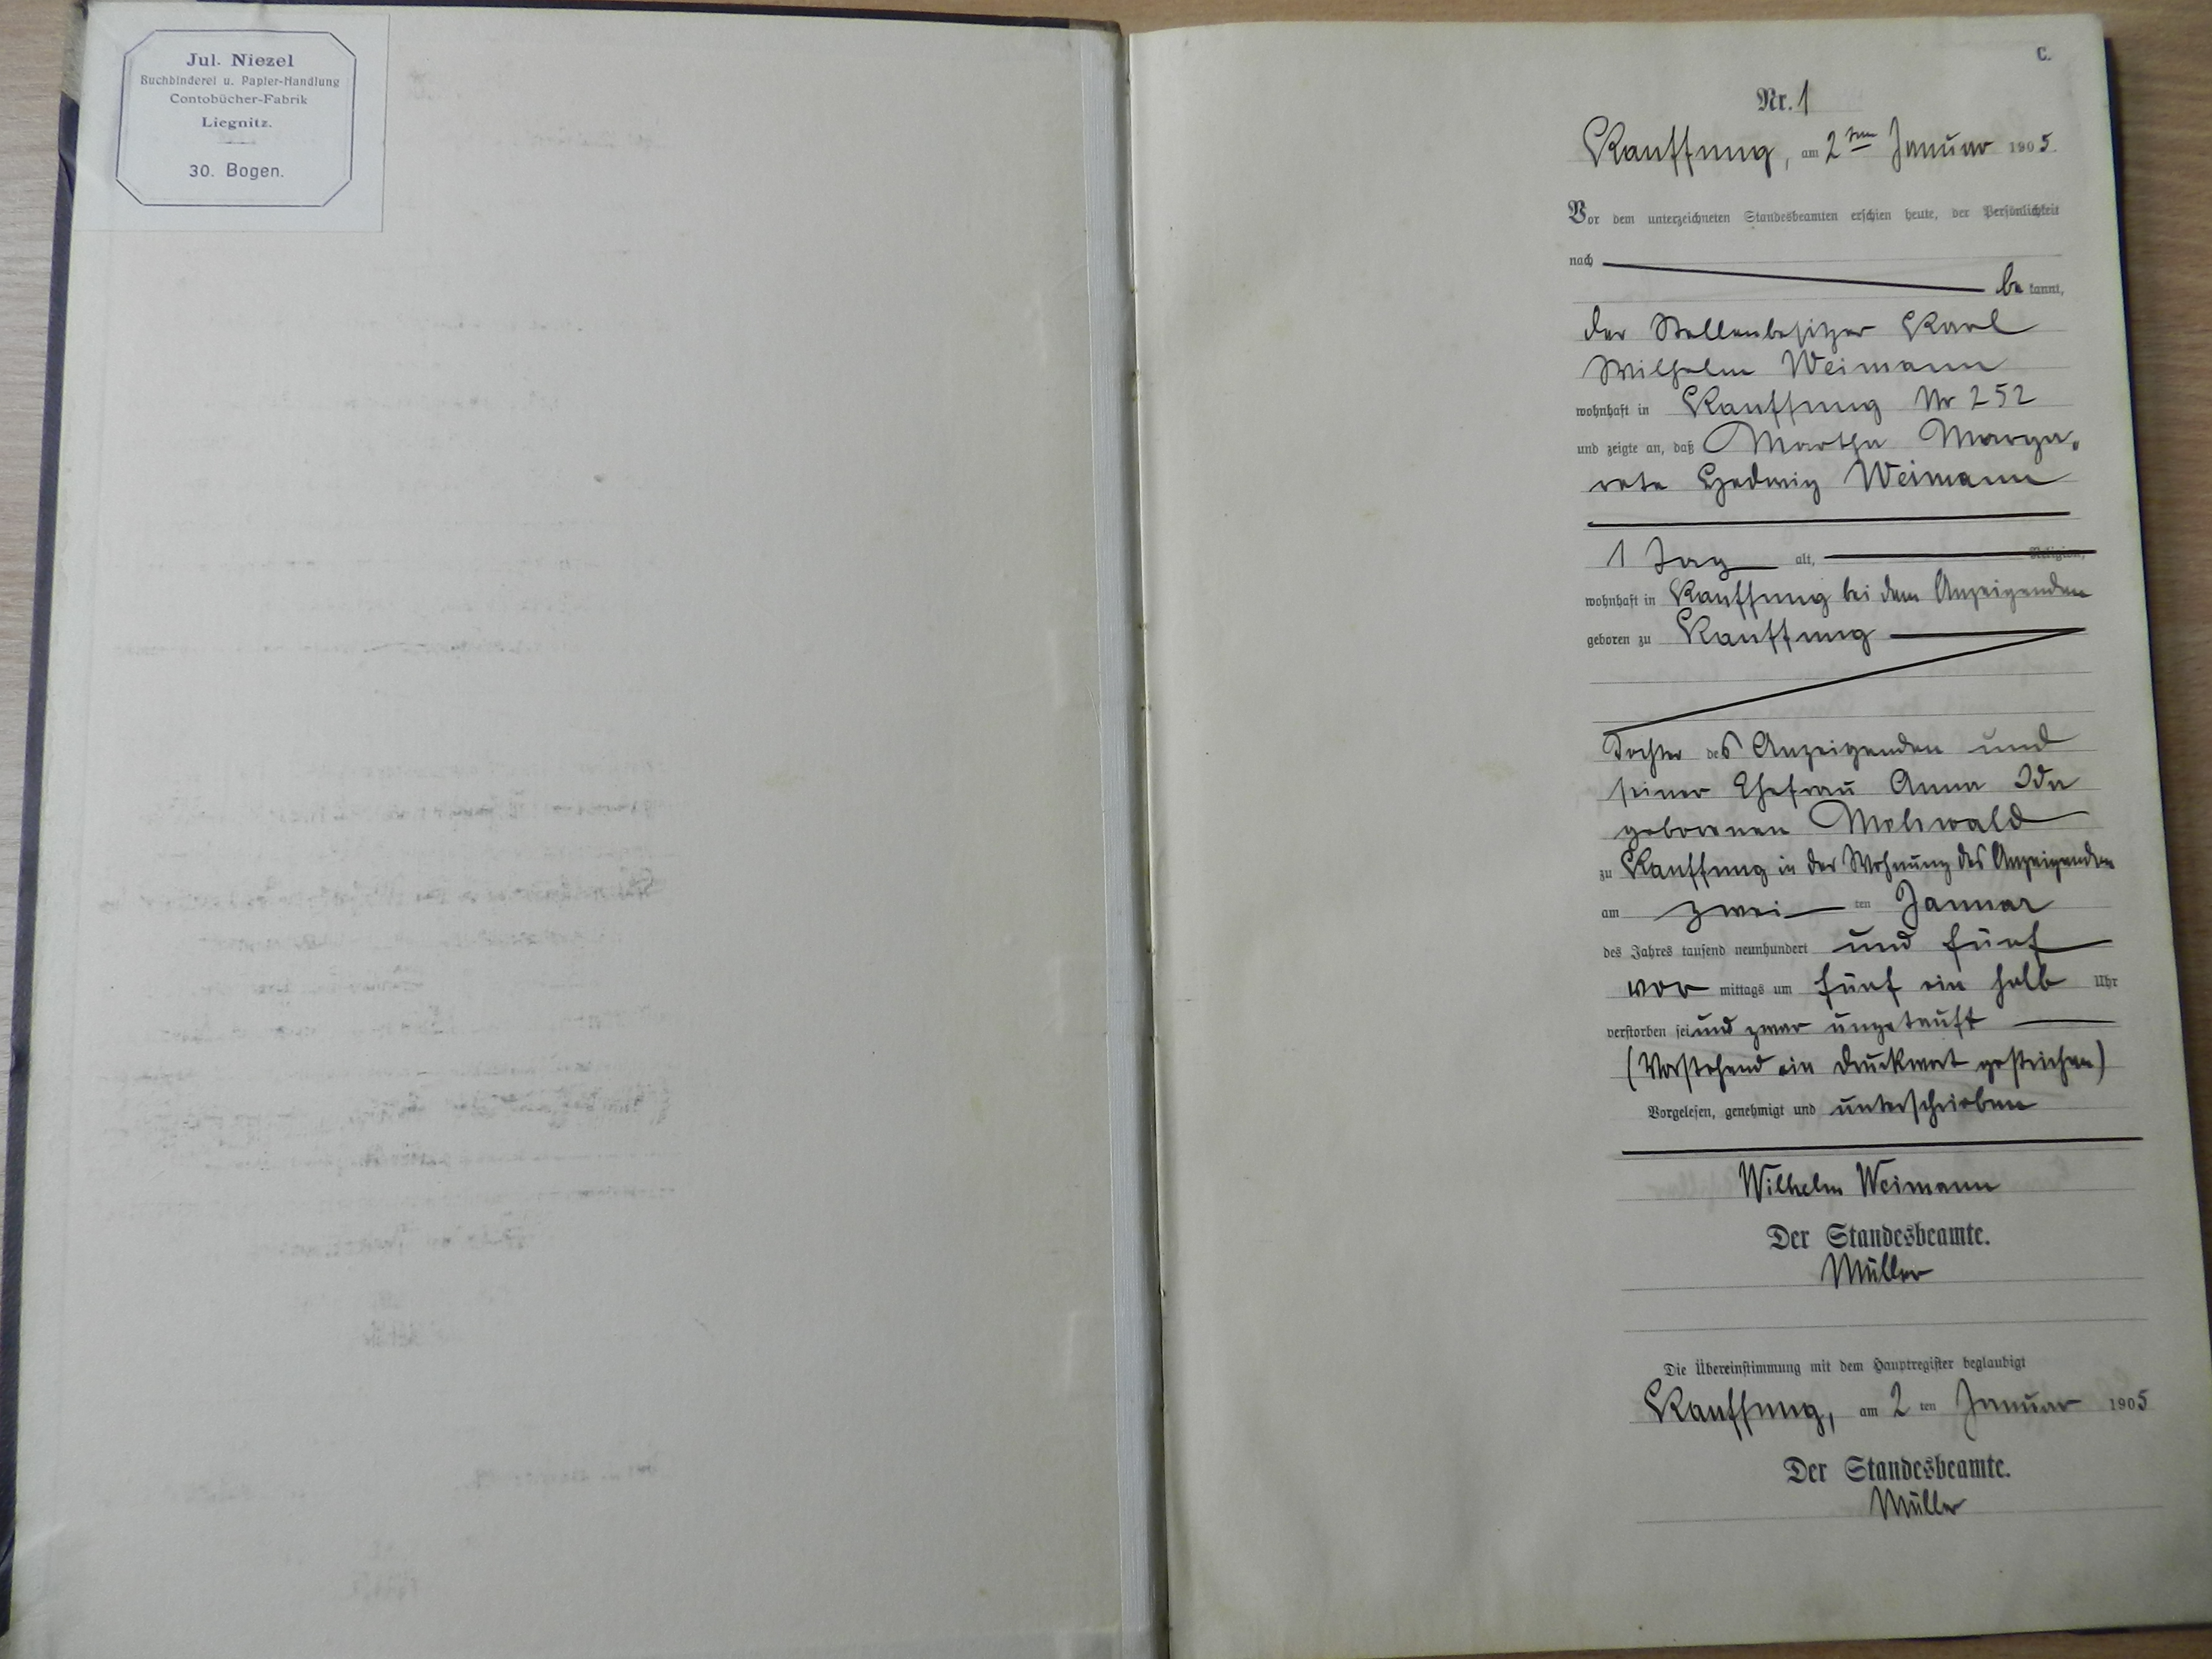 Jul. Niezel
Buchbinderei u. Papier-Handlung
Contobücher-Fabrik
Liegnitz.
30. Bogen.
C.
Nr. 1
Kauffung, am 2ten Januar 1905.
Vor dem unterzeichneten Standesbeamten erschien heute, der Persönlichkeit
nach
bekannt,
der Stellenbesitzer Karl
Wilhelm Weimann
wohnhaft in Kauffung Nr 252
und zeigte an, daß Martha Marga-
rete Hedwig Weimann
1 Tag alt, Religion,
wohnhaft in Kauffung bei dem Anzeigenden
geboren zu Kauffung
Tochter des Anzeigenden und
seiner Ehefrau Anna Ida
geborenen
zu Kauffung in der Wohnung des Anzeigenden
am zwei ten Januar
des Jahres tausend neunhundert und fünf
vor mittags um fünf ein halb Uhr
verstorben sei und zwar ungetauft
(Vorstehend ein Druckwort gestrichen)
Vorgelesen, genehmigt und unterschrieben
Wilhelm Weimann
Der Standesbeamte.
Müller
Die Übereinstimmung mit dem Hauptregister beglaubigt
Kauffung, am 2 ten Januar 1905
Der Standesbeamte.
Müller